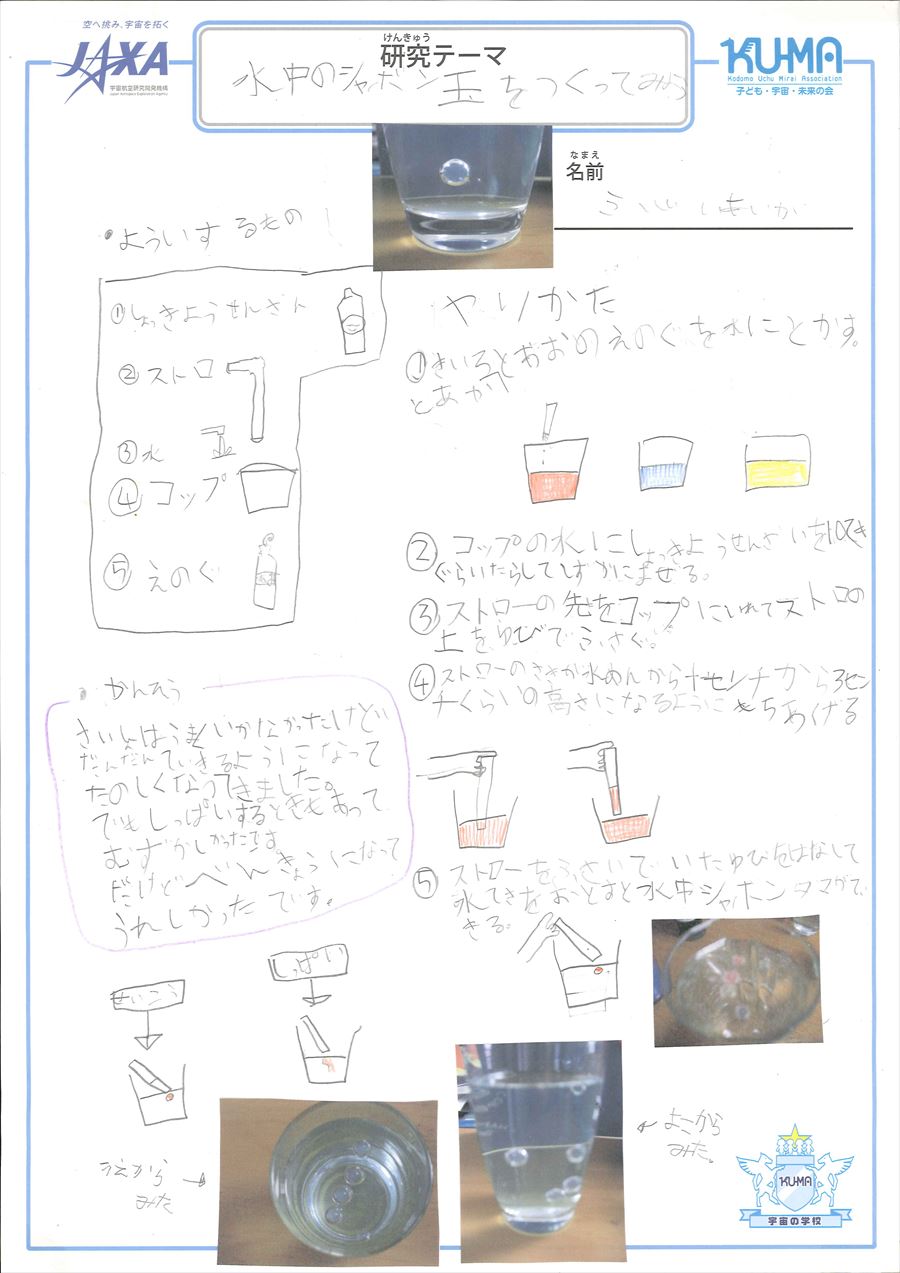 空へ挑み、宇宙を拓く
JAXA
宇宙航空研究開発機構
Japan Aerospace Exploration Agency
けんきゅう
研究テーマ
水中のシャボン玉をつくってみよう
KU-MA
Kodomo Uchu Mirai Association
子ども・宇宙・未来の会
なまえ
名前
・よういするもの
①しょっきようせんざい
②ストロ
③水
④コップ
⑤えのぐ
ヤリかた
①きいろとあおのえのぐを水にとかす。
とあか
②コップの水にしょっきようせんざいを10てき
ぐらいたらしてしずかにまぜる。
③ストローの先をコップにいれてストロの
上をゆびでふさぐ。
④ストローのさきが水めんから
チくらいの高さになるようにもちあげる
⑤ストローをふさいでいたゆびをはなして
水てきをおとすと水中シャボンタマがで
きる。
かんそう
さいしょはうまくいかなかったけど
だんだんできるようになって
たのしくなってきました。
でもしっぱいするときもあって
むずかしかったです
だけどべんきょうになって
うれしかったです。
せいこう
しっぱい
うえから
みた
よこから
みた。
KU-MA
宇宙の学校